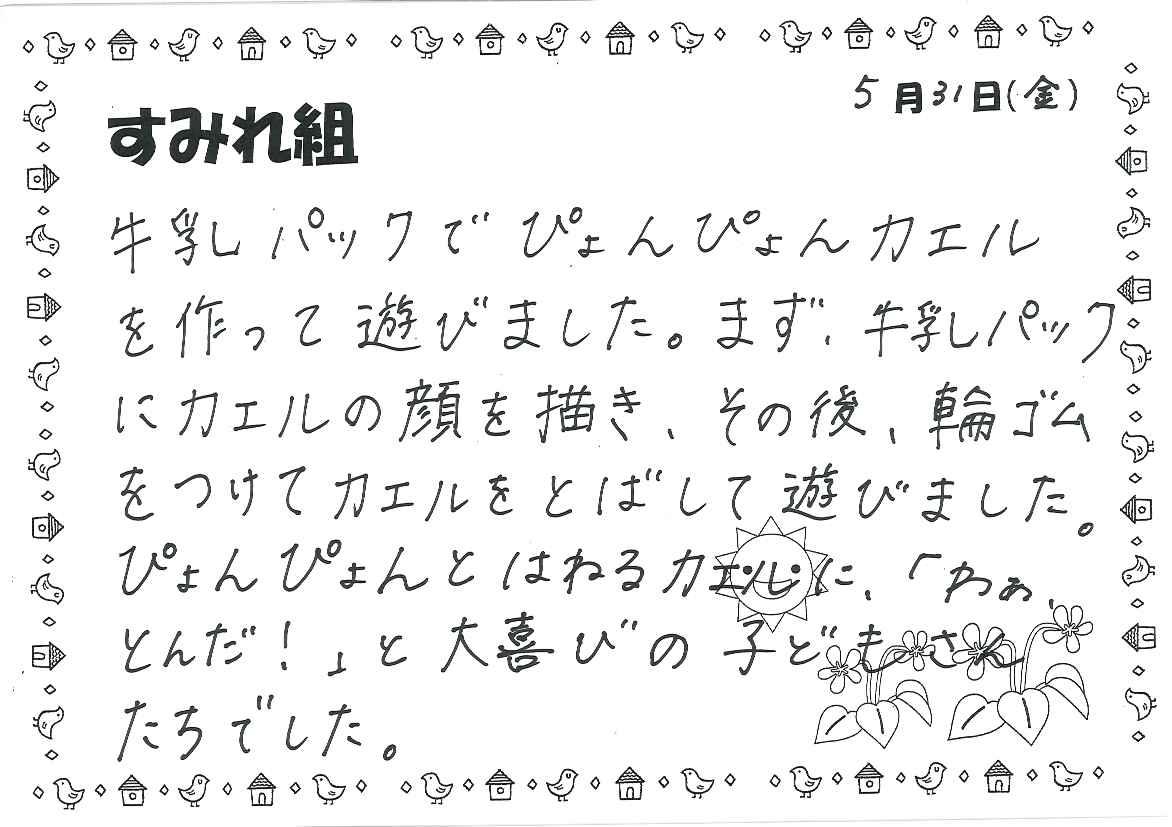 5月31日(金)
すみれ組
牛乳パックでぴょんぴょんカエル
を作って遊びました。まず、牛乳パック
にカエルの顔を描き、その後、輪ゴム
をつけてカエルをとばして遊びました。
ぴょんぴょんとはねるカエルに、「わぁ、
とんだ!」と大喜びの子どもさん
たちでした。